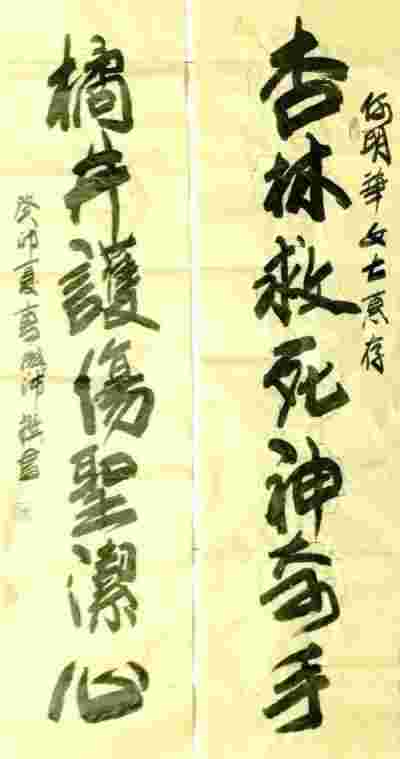 何明華女士惠存
杏林救死神奇手
橘井護傷聖潔心
癸卯夏萬